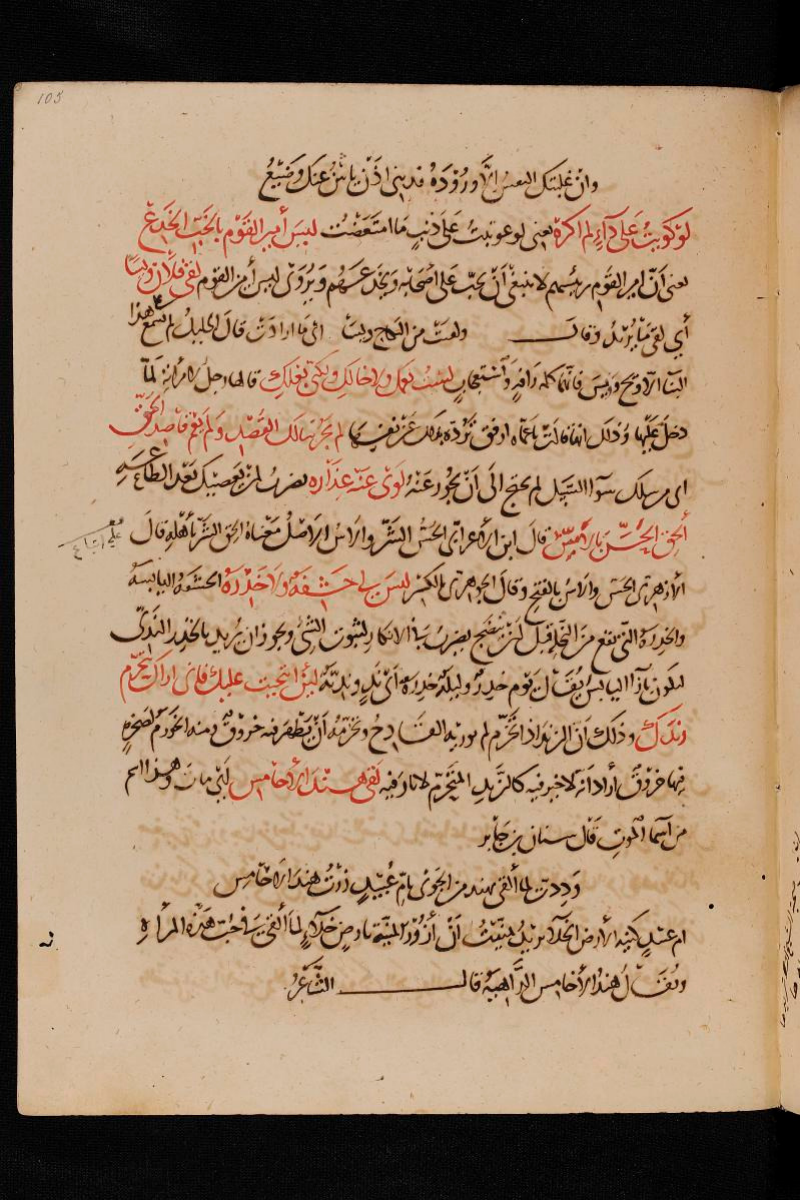 105
وان غلبتك النفس الا وروده فديني اذن يا بثن عنك وضيع
لو كويت على داء لم اكره يعني لو عوتبت على ذنب ما امتعضت ليس أمير القوم بالخب الخدع
يعنى أنّ امير القوم رئيسهم لا ينبغي أن يخب على أصحابه ويخدعهم ويروى ليس أمين القوم لقى فلان ويسا
أي لقى ما يريد وقال ولقت من النكاح ويسا اى ما ارادت قال الخليل لم يسمع هذا
البنا الا ويح وويس فانما كله رافة واستملاح لست بعمك ولا خالك ولكني بعلك قالها رجل لامرأة لما
دخل عليها وذلك انها قالت يا عماه ارفق لم يجر سالك القصد ولم يعم قاصد الحق
اى من سلك سوآ السبيل لم يحتج الى أن يجور عنه لوى عنه عذاره يضرب لمن يعصيك بعد الطاعة
ألحق الحسّ بالاسّ قال ابن الاعرابى الحسّ الشرّ والاسّ الاصل معناه الحق الشرّ بأهله قال
الازهرى الحسّ والاسّ بالفتح وقال الجوهرى بالكسر ليس لي حشفة ولا خدرة الحشفة اليابسة
والخدرة التى تقع من النخل قبل أن ينضج يضرب في الانكار لثبوت الشئ ويجوز ان يريد بالخدر الندى
ليكون بازآ اليابس يقال يوم خدر وليلة خدرة أى ند وندية لئن انتحيت عليك فانى اراك يتخرم
زندك وذلك أنّ الزند اذا تخرّم لم يور به القادح وتخرّمه أن يظهر فيه خروق ومنه الخورم لصخرة
فيها خروق أراد انه لا خير فيه كالزند المتخرّم لا نار فيه لقى هند الاخامس أي مات وهذا اسم
من أسما الموت قال سنان بن جابر
وددت لما ألقى بهند من الجوى بام عبيد زرت هند الاخامس
ام عبيد كنية الارض الخلآ يريد تمنيت أن أزور المنية بارض خلآء لما ألقى في حب هذه المرأة
ويقال هند الاخامس الداهية قال الشاعر